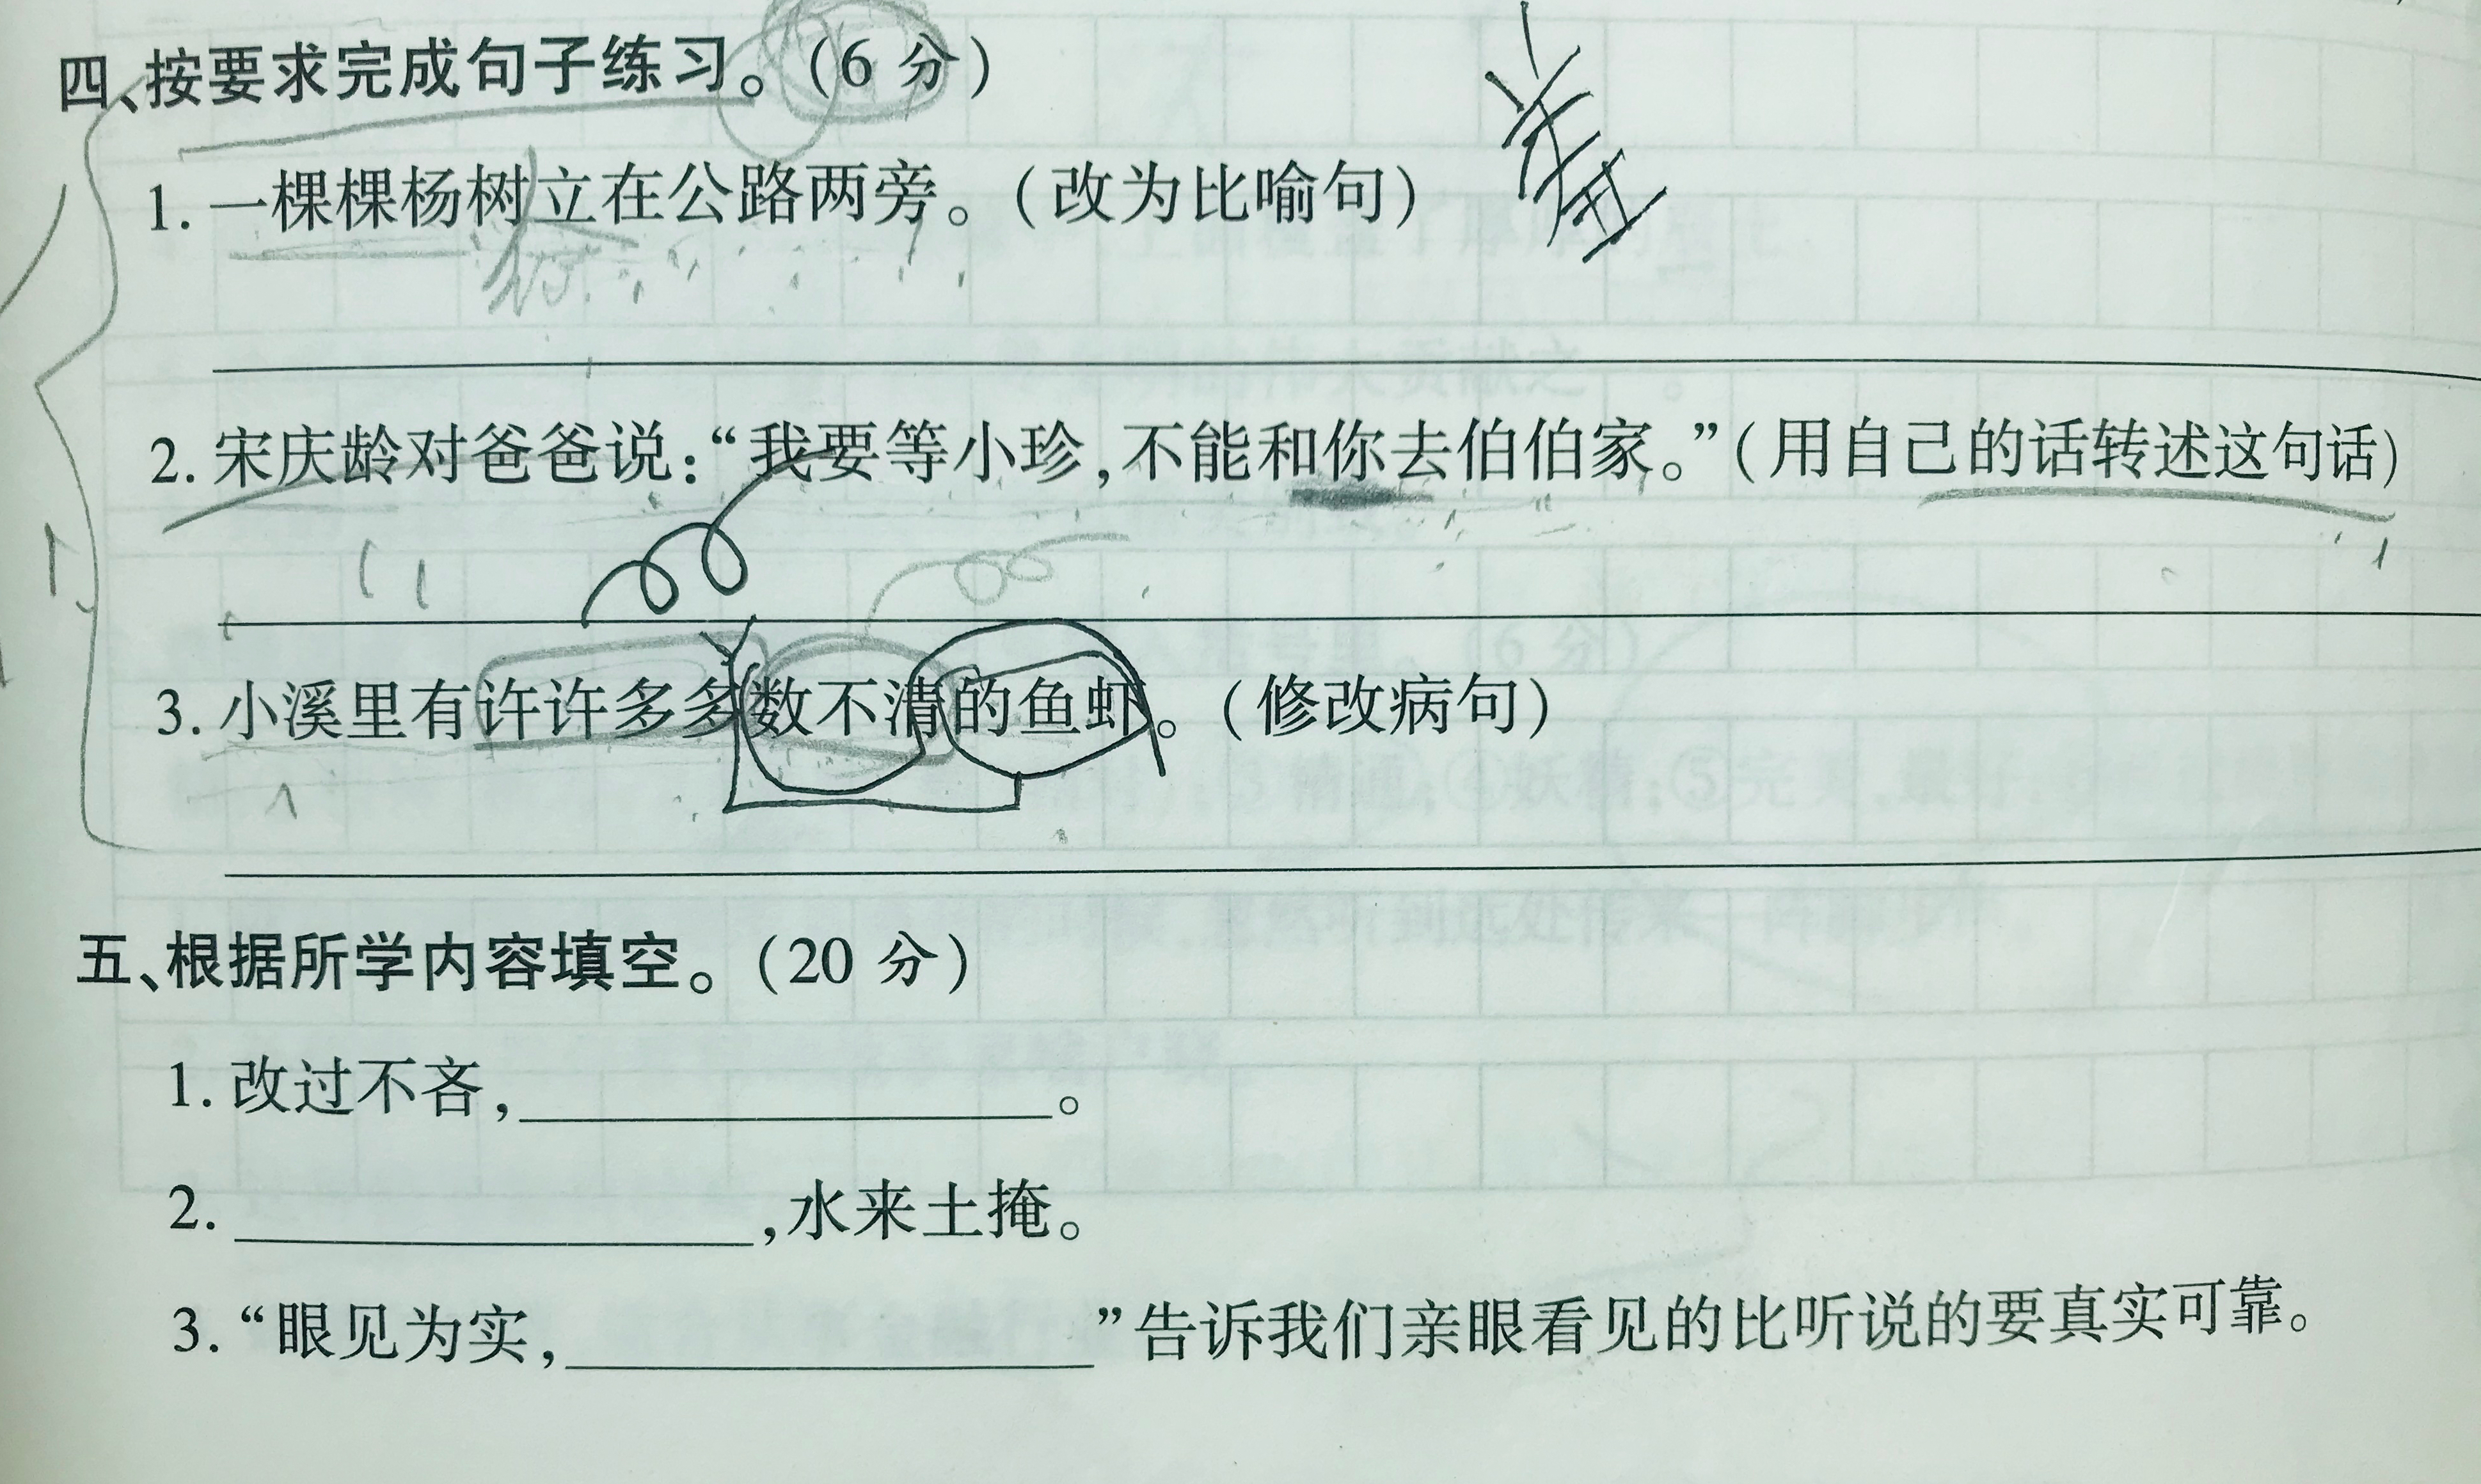 四、按要求完成句子练习。（6 分）
1. 一棵棵杨树立在公路两旁。（改为比喻句）
2. 宋庆龄对爸爸说：“我要等小珍，不能和你去伯伯家。”（用自己的话转述这句话）
3. 小溪里有许许多多数不清的鱼虾。（修改病句）
五、根据所学内容填空。（20 分）
1. 改过不吝，____________。
2. ____________，水来土掩。
3. “眼见为实，____________”告诉我们亲眼看见的比听说的要真实可靠。